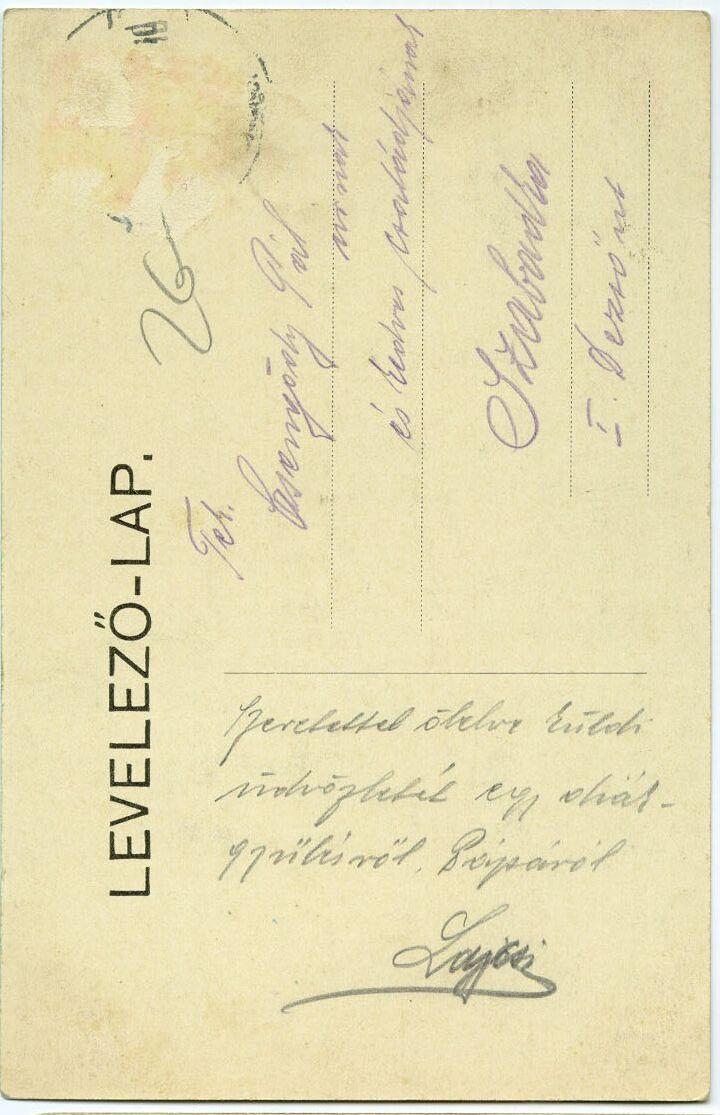 LEVELEZŐ-LAP.
26
Tek.
Pál
úrnak
és kedves családjának
Szabadka
I. Dezső út
Szeretettel ölelve küldi
üdvözletét egy diák-
gyűlésről, Pápáról
Lajcsi